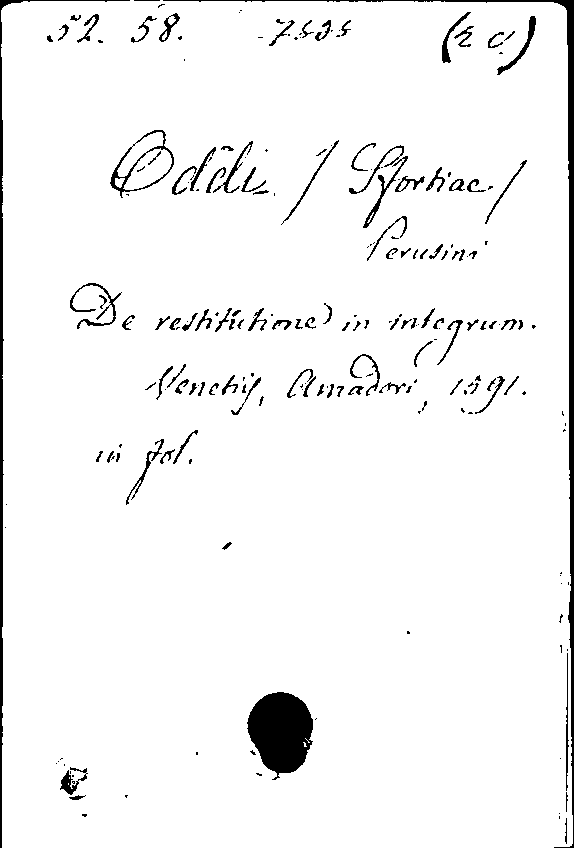 52. 58.
Oddi / Sfortiae /
Perusini
De restitutione in integrum.
Venetiis, Amadori, 1591.
in fol.